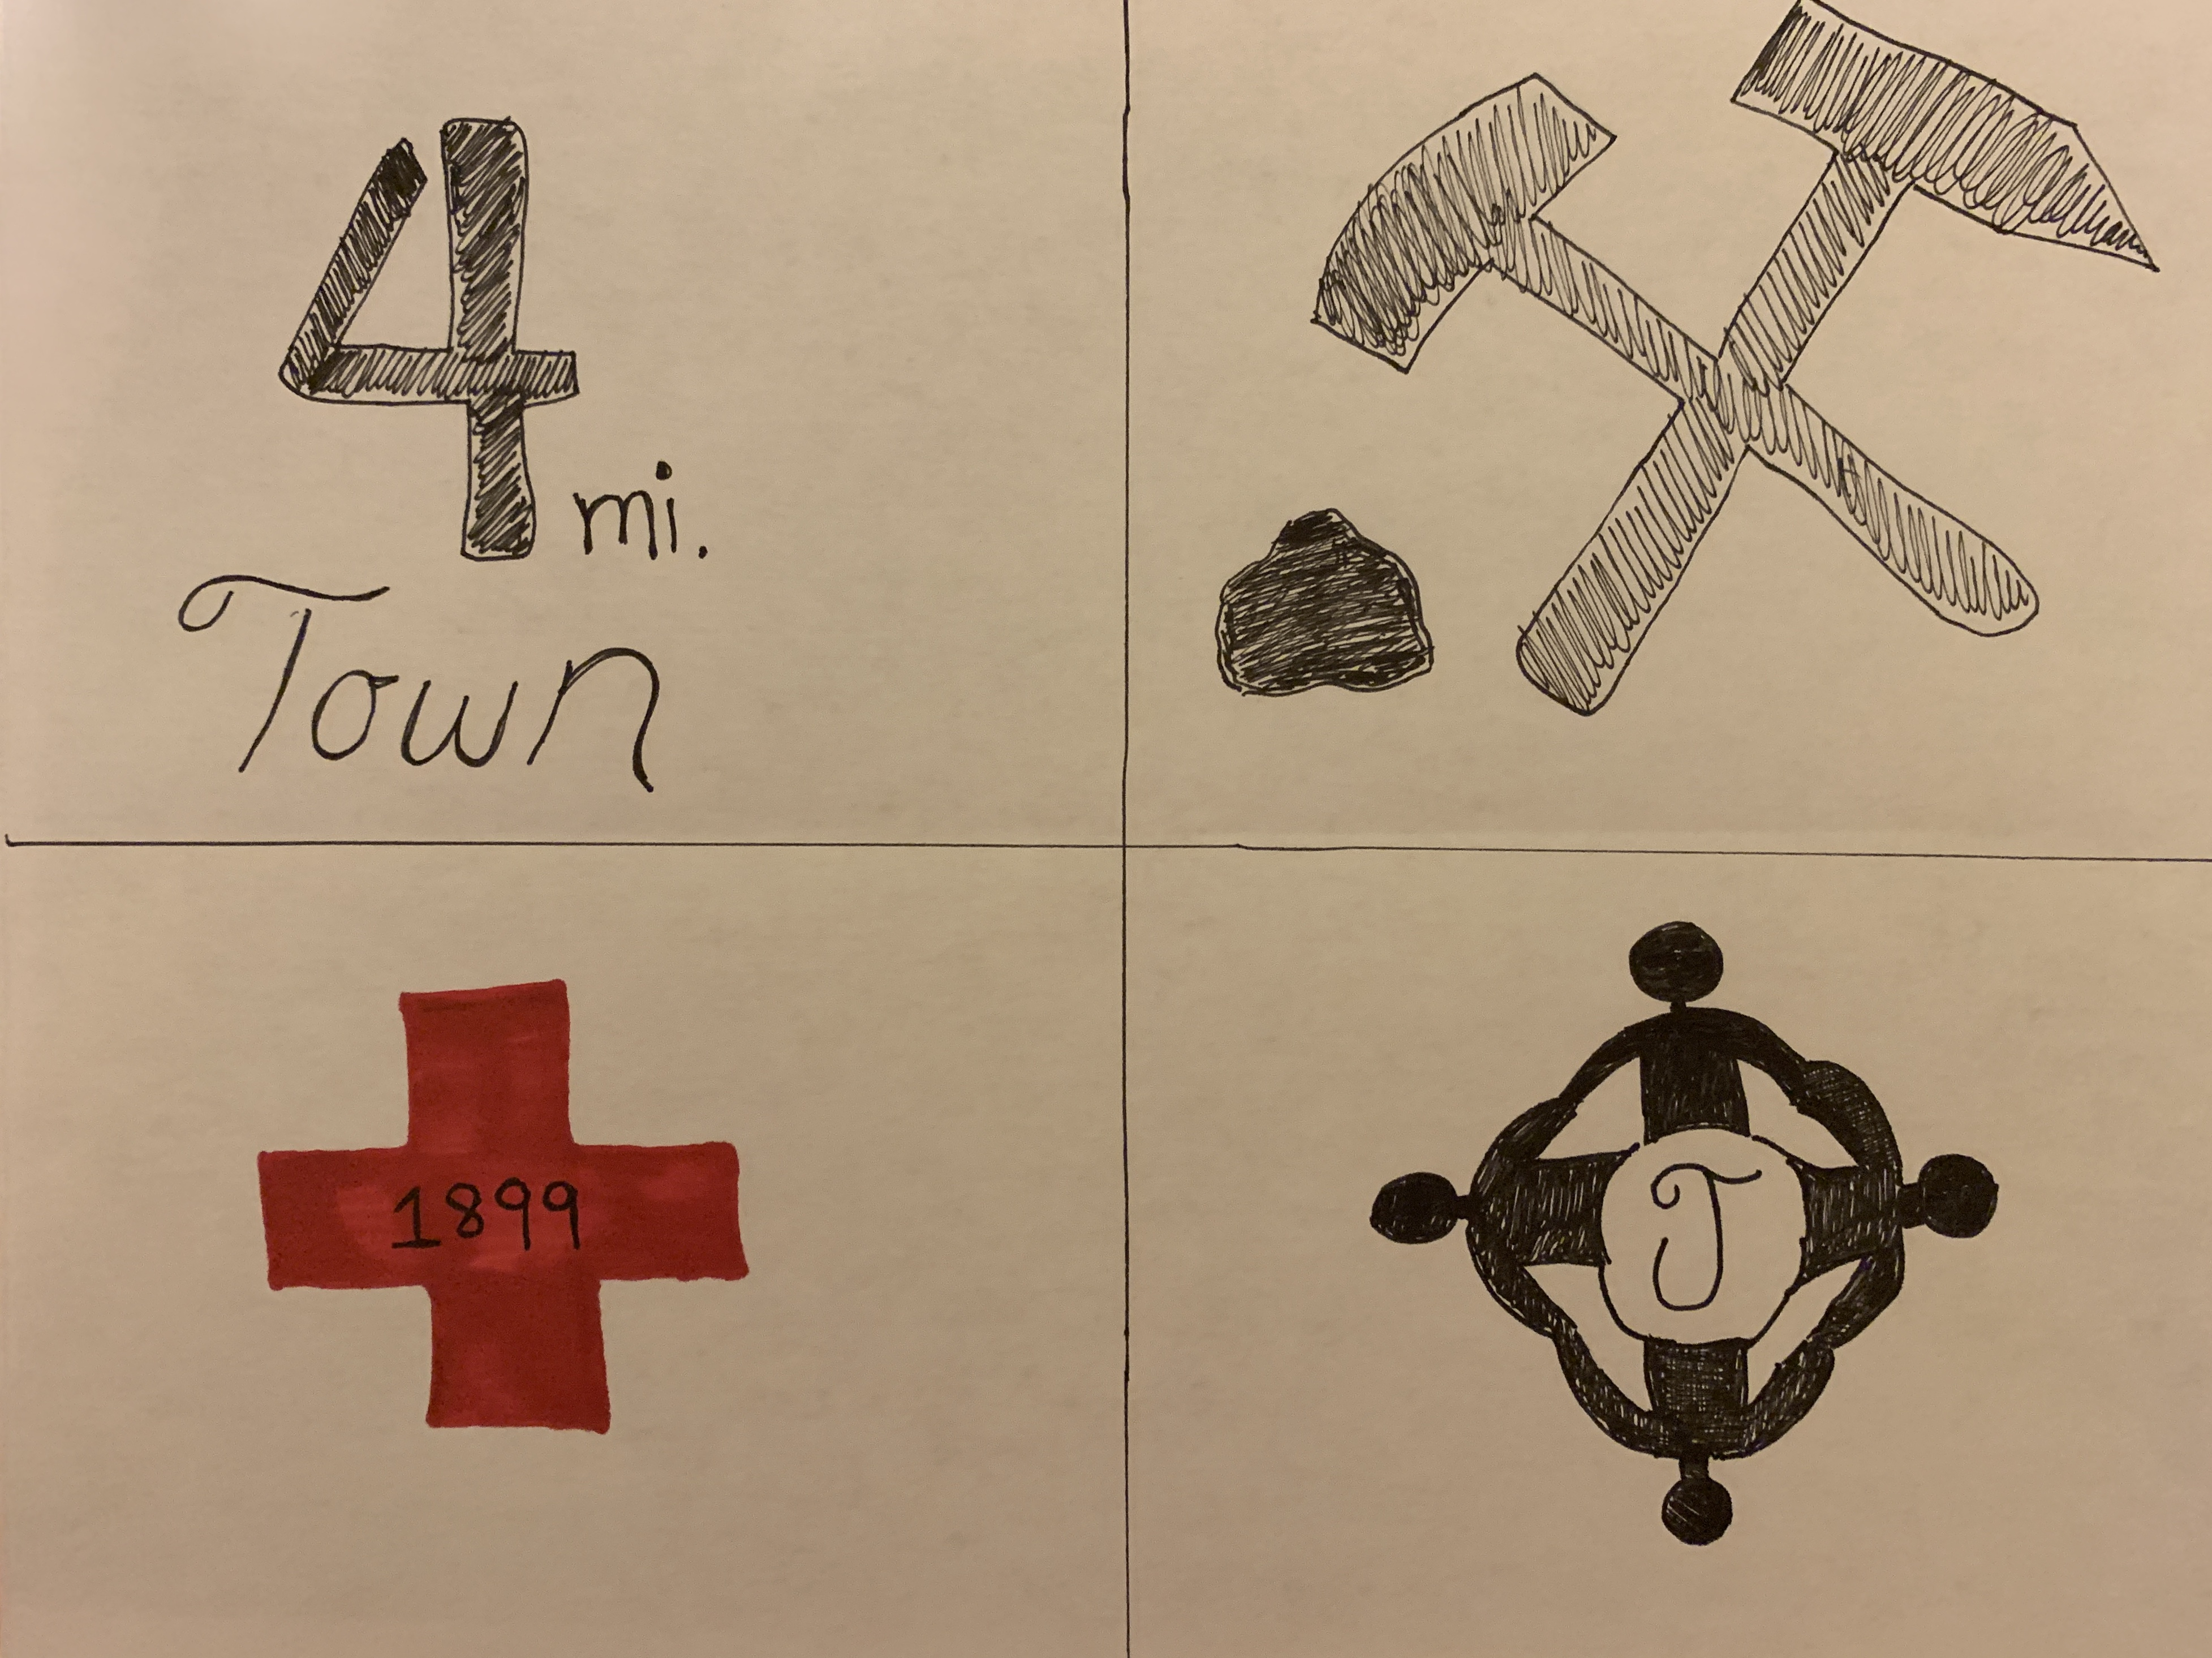 4 mi.
Town
1899
J